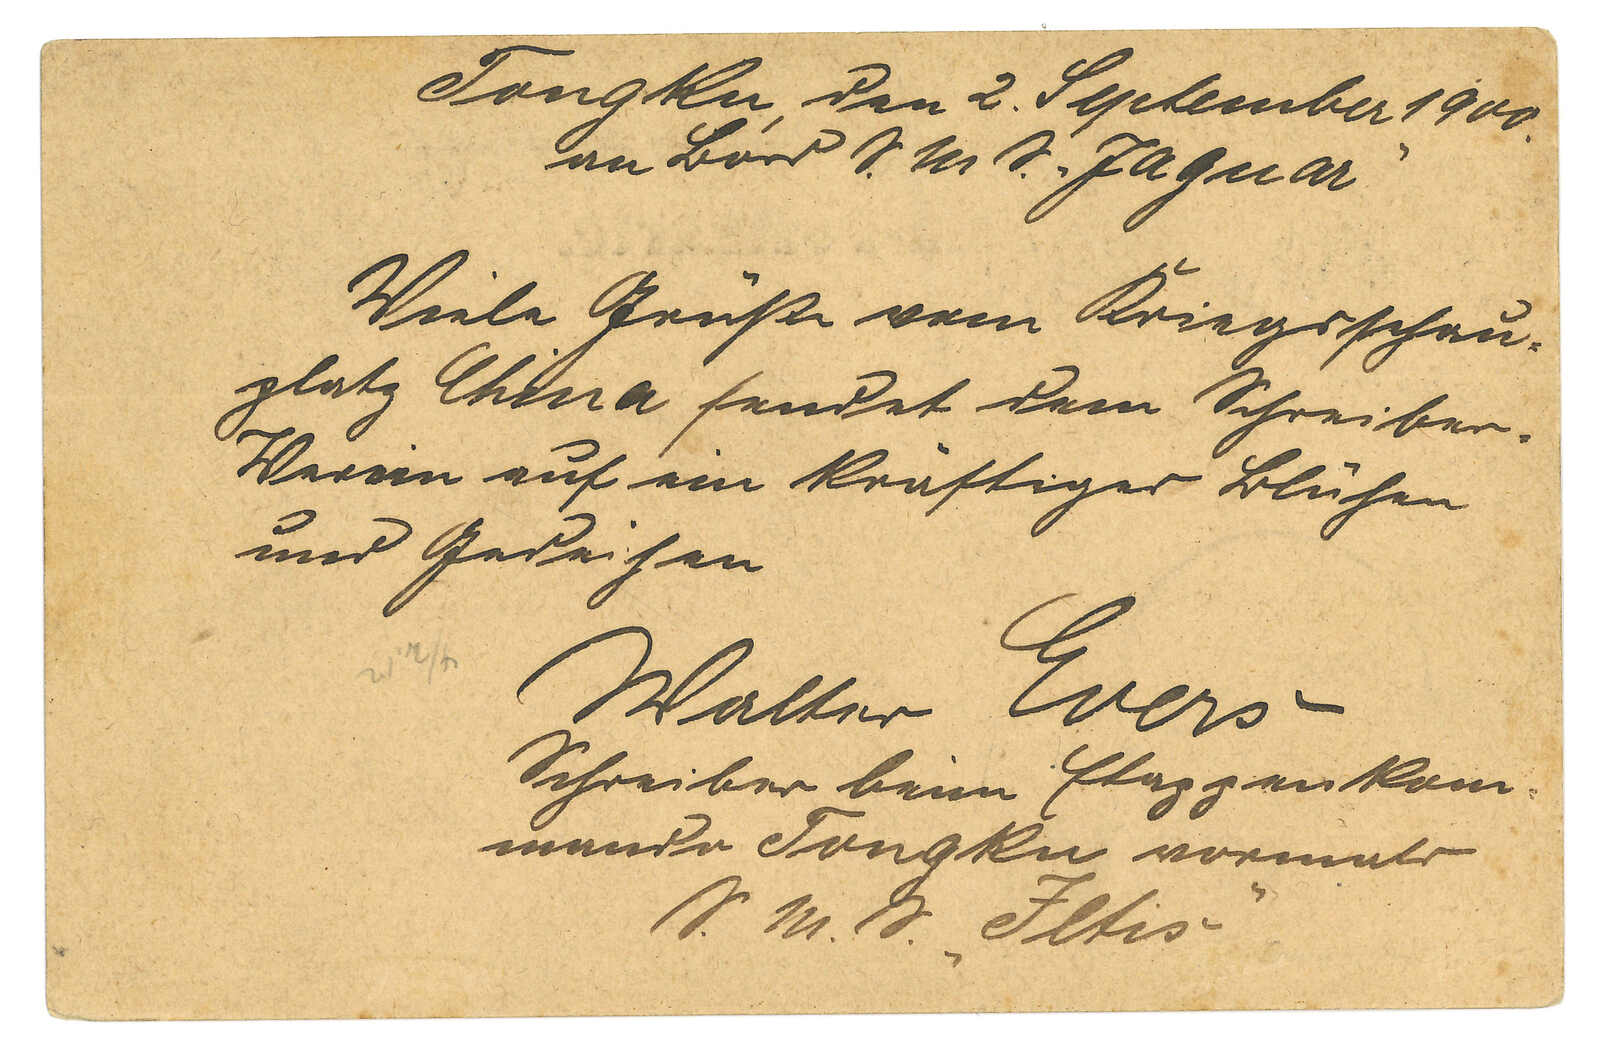 Tongku, den 2. September 1900.
an Bord S. M. S. „Jaguar"
Viele Grüße vom Kriegsschau-
platz China sendet dem Schreiber-
Verein auf ein kräftiges Blühen
und Gedeihen
Walter Evers
Schreiber beim Etappenkom-
mando Tongku vormals
S. M. S. „Iltis"